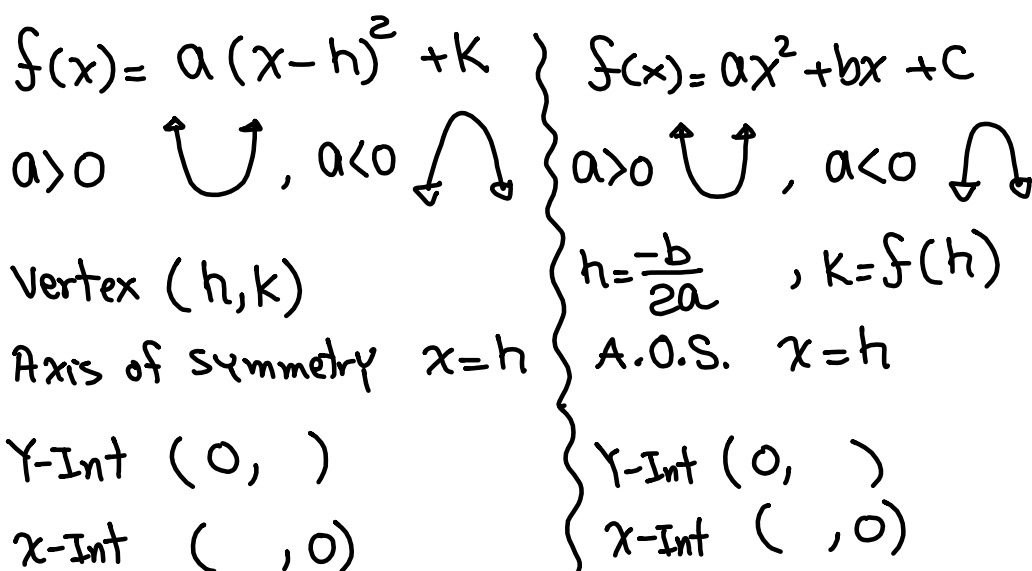 f(x) = a(x-h)² + k
a>0 , a<0
Vertex (h,k)
Axis of symmetry x=h
Y-Int (0, )
x-Int ( ,0)
f(x) = ax² + bx + c
a>0 , a<0
h = -b/2a , k = f(h)
A.O.S. x=h
Y-Int (0, )
x-Int ( ,0)